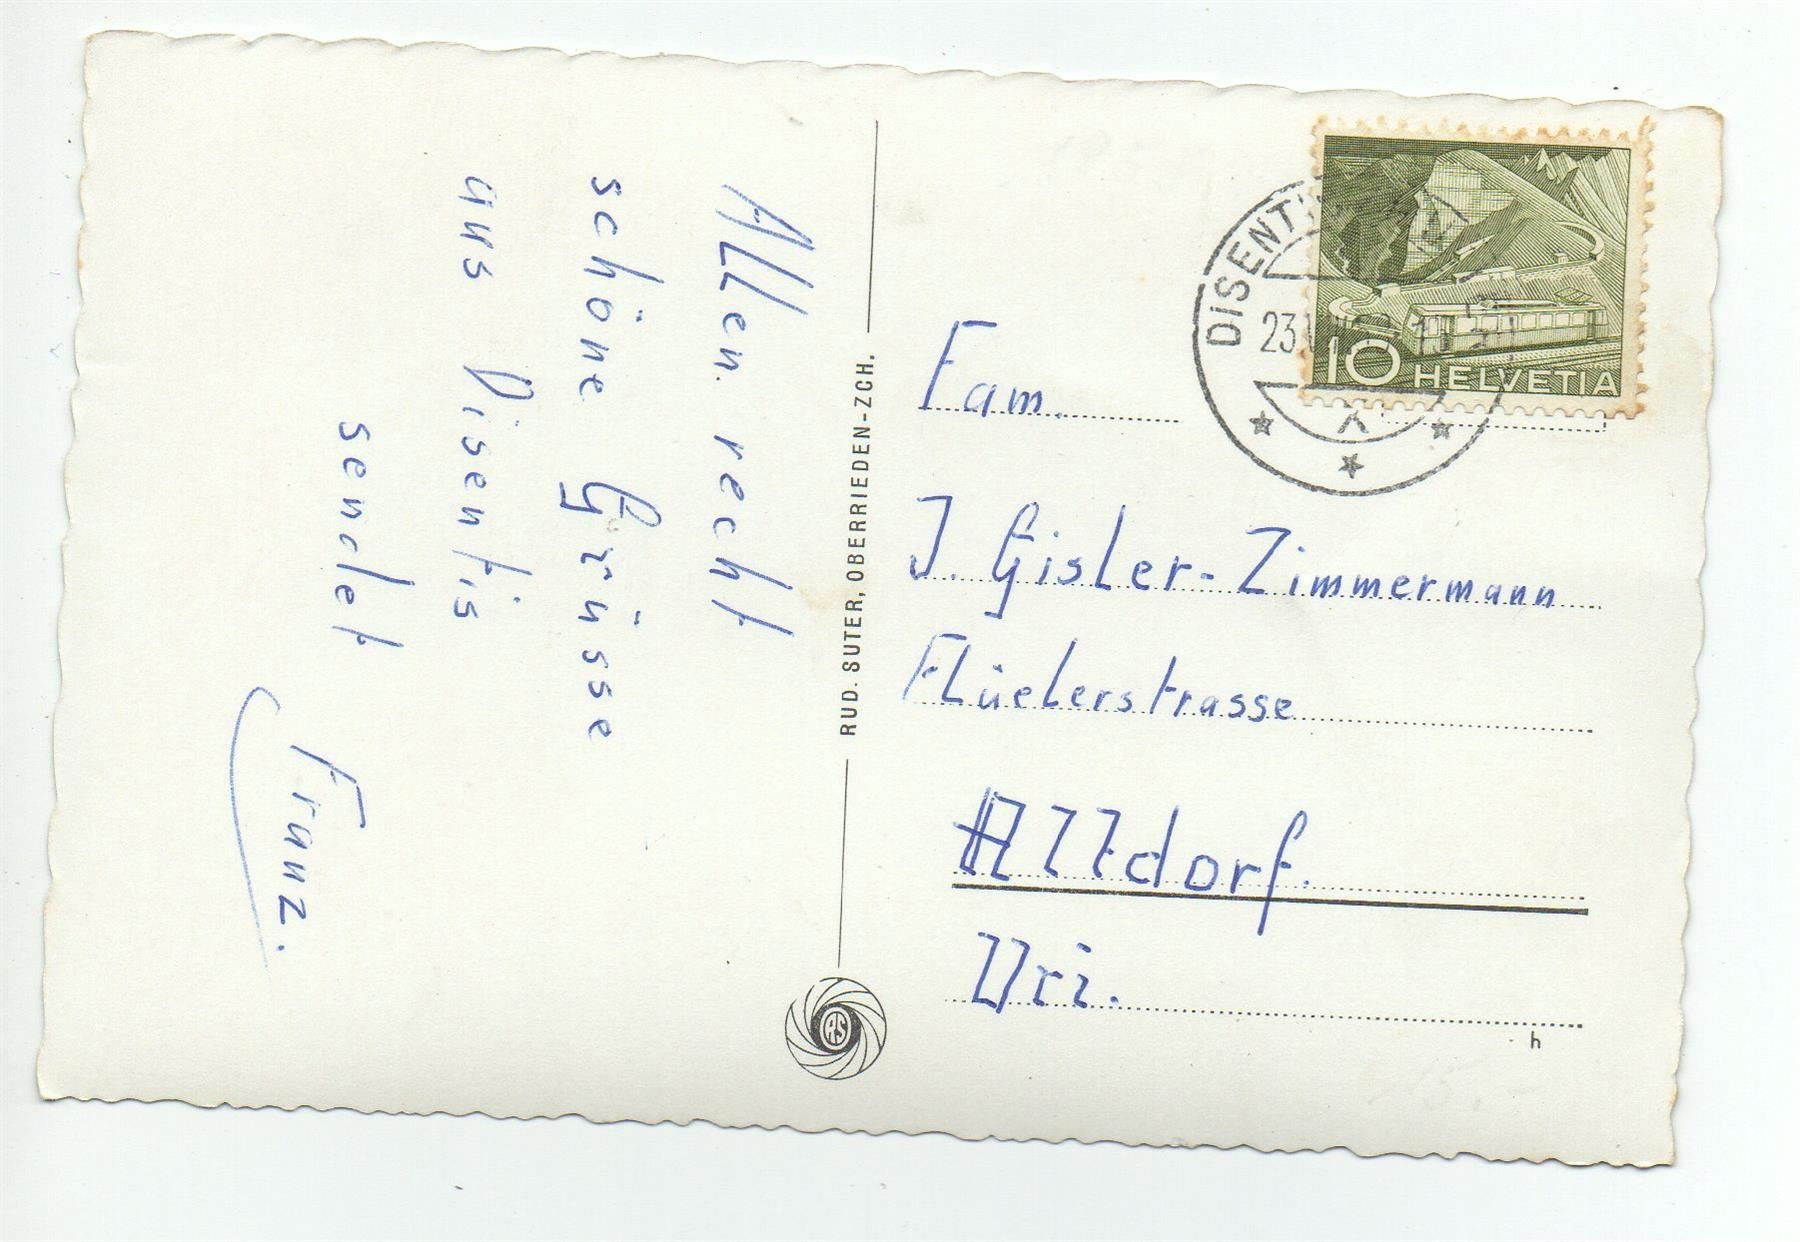 Allen recht
schöne Grüsse
aus Disentis
sendet
Franz.
RUD. SUTER, OBERRIEDEN-ZCH.
RS
10 HELVETIA
Fam.
J. Gisler-Zimmermann
Flüelerstrasse
Altdorf.
Uri.
h